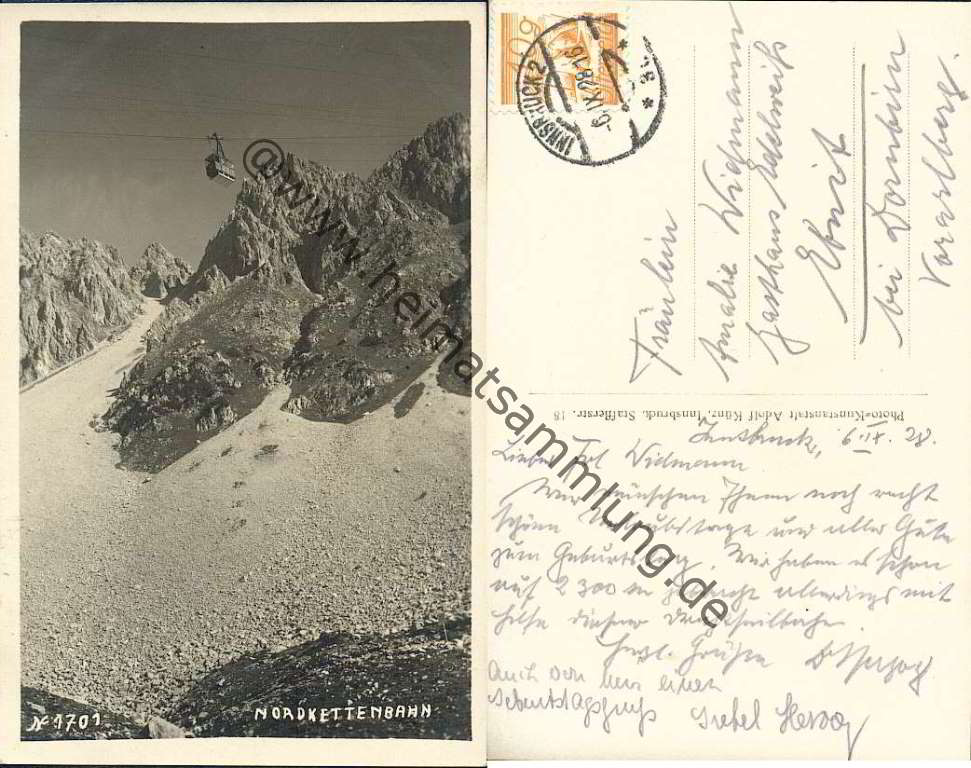 N 1701
NORDKETTENBAHN
@www.heimatsammlung.de
10g
INNSBRUCK 2
-6.IX.28 16
Fräulein
Amalie Widmann
Gasthaus Edelweiß
Ebnit
bei Dornbirn
Vorarlberg.
Photo-Kunstanstalt Adolf Künz, Innsbruck, Stafflerstr. 18
Innsbruck, 6.IX.28.
Liebes Frl Widmann
Wir wünschen Ihnen noch recht
schöne Urlaubstage und alles Gute
zum Geburtstag. Wir haben es schon
auf 2300 m gebracht allerdings mit
Hilfe dieser Drahtseilbahn.
Herzl. Grüße Herzog
Auch von mir einen
Geburtstagsgruß Gretel Herzog